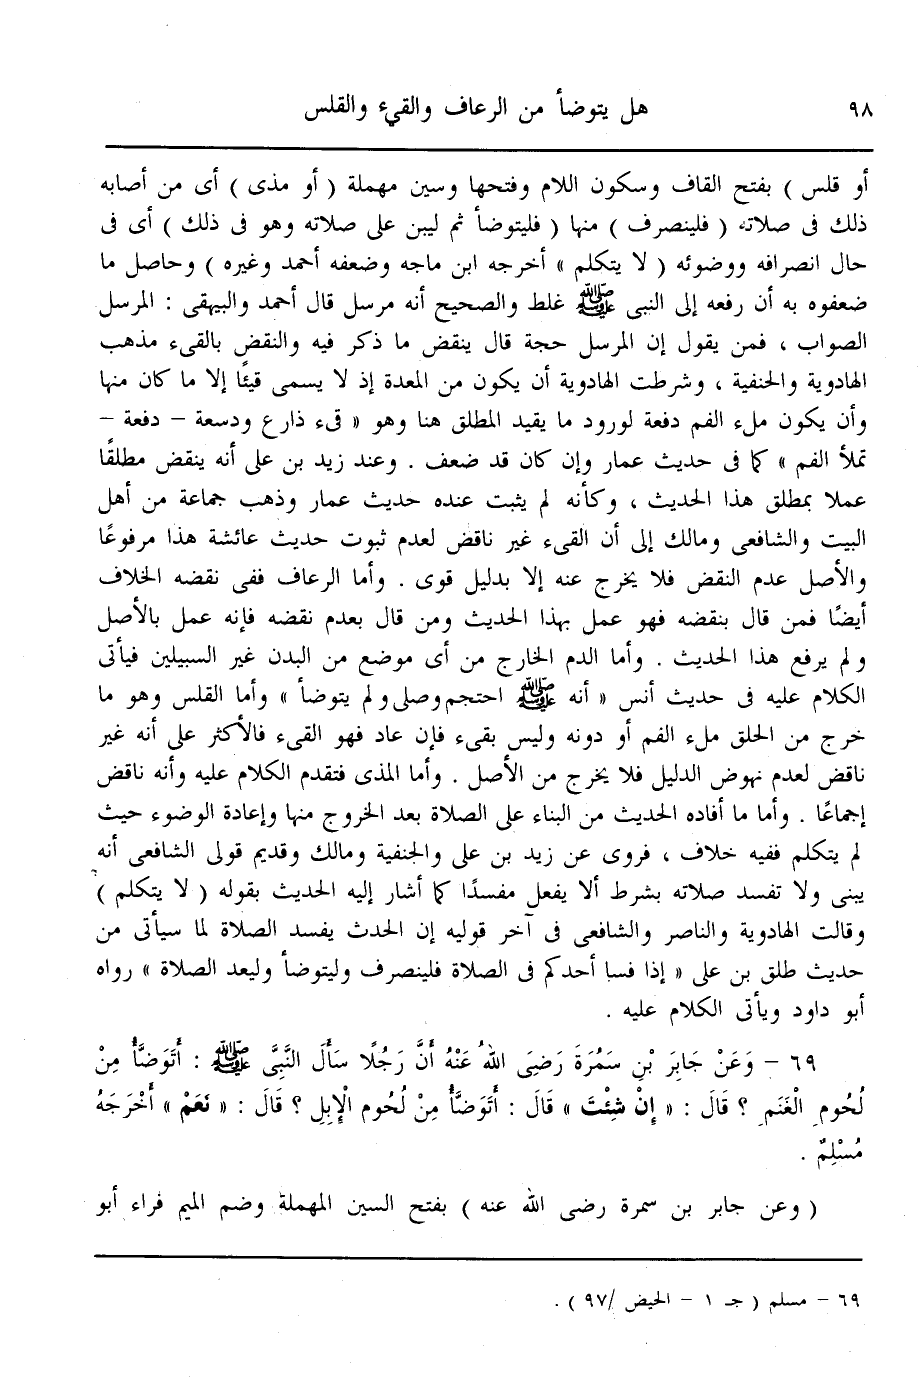 ٩٨
هل يتوضأ من الرعاف والقيء والقلس
أو قلس ) بفتح القاف وسكون اللام وفتحها وسين مهملة ( أو مذى ) أى من أصابه
ذلك فى صلاته ( فلينصرف ) منها ( فليتوضأ ثم ليبن على صلاته وهو فى ذلك ) أى فى
حال انصرافه ووضوئه ( لا يتكلم » أخرجه ابن ماجه وضعفه أحمد وغيره ) وحاصل ما
ضعفوه به أن رفعه إلى النبى ﷺ غلط والصحيح أنه مرسل قال أحمد والبيهقى : المرسل
الصواب ، فمن يقول إن المرسل حجة قال ينقض ما ذكر فيه والنقض بالقىء مذهب
الهادوية والحنفية ، وشرطت الهادوية أن يكون من المعدة إذ لا يسمى قيئًا إلا ما كان منها
وأن يكون ملء الفم دفعة لورود ما يقيد المطلق هنا وهو « قىء ذارع ودسعة – دفعة –
تملأ الفم » كما فى حديث عمار وإن كان قد ضعف . وعند زيد بن على أنه ينقض مطلقًا
عملا بمطلق هذا الحديث ، وكأنه لم يثبت عنده حديث عمار وذهب جماعة من أهل
البيت والشافعى ومالك إلى أن القىء غير ناقض لعدم ثبوت حديث عائشة هذا مرفوعًا
والأصل عدم النقض فلا يخرج عنه إلا بدليل قوى . وأما الرعاف ففى نقضه الخلاف
أيضًا فمن قال بنقضه فهو عمل بهذا الحديث ومن قال بعدم نقضه فإنه عمل بالأصل
ولم يرفع هذا الحديث . وأما الدم الخارج من أى موضع من البدن غير السبيلين فيأتى
الكلام عليه فى حديث أنس « أنه ﷺ احتجم وصلى ولم يتوضأ » وأما القلس وهو ما
خرج من الحلق ملء الفم أو دونه وليس بقىء فإن عاد فهو القىء فالأكثر على أنه غير
ناقض لعدم نهوض الدليل فلا يخرج من الأصل . وأما المذى فتقدم الكلام عليه وأنه ناقض
إجماعًا . وأما ما أفاده الحديث من البناء على الصلاة بعد الخروج منها وإعادة الوضوء حيث
لم يتكلم ففيه خلاف ، فروى عن زيد بن على والحنفية ومالك وقديم قولى الشافعى أنه
يبنى ولا تفسد صلاته بشرط ألا يفعل مفسدًا كما أشار إليه الحديث بقوله ( لا يتكلم )
وقالت الهادوية والناصر والشافعى فى آخر قوليه إن الحدث يفسد الصلاة لما سيأتى من
حديث طلق بن على « إذا فسا أحدكم فى الصلاة فلينصرف وليتوضأ وليعد الصلاة » رواه
أبو داود ويأتى الكلام عليه .
٦٩ – وَعَنْ جَابِرِ بْنِ سَمُرَةَ رَضِىَ اللهُ عَنْهُ أَنَّ رَجُلًا سَأَلَ النَّبِىَّ ﷺ : أَتَوَضَّأُ مِنْ
لُحُومِ الْغَنَمِ ؟ قَالَ : « إِنْ شِئْتَ » قَالَ : أَتَوَضَّأُ مِنْ لُحُومِ الْإِبِلِ ؟ قَالَ : « نَعَمْ » أَخْرَجَهُ
مُسْلِمٌ .
( وعن جابر بن سمرة رضى الله عنه ) بفتح السين المهملة وضم الميم فراء أبو
٦٩ – مسلم ( جـ ١ – الحيض /٩٧ ) .